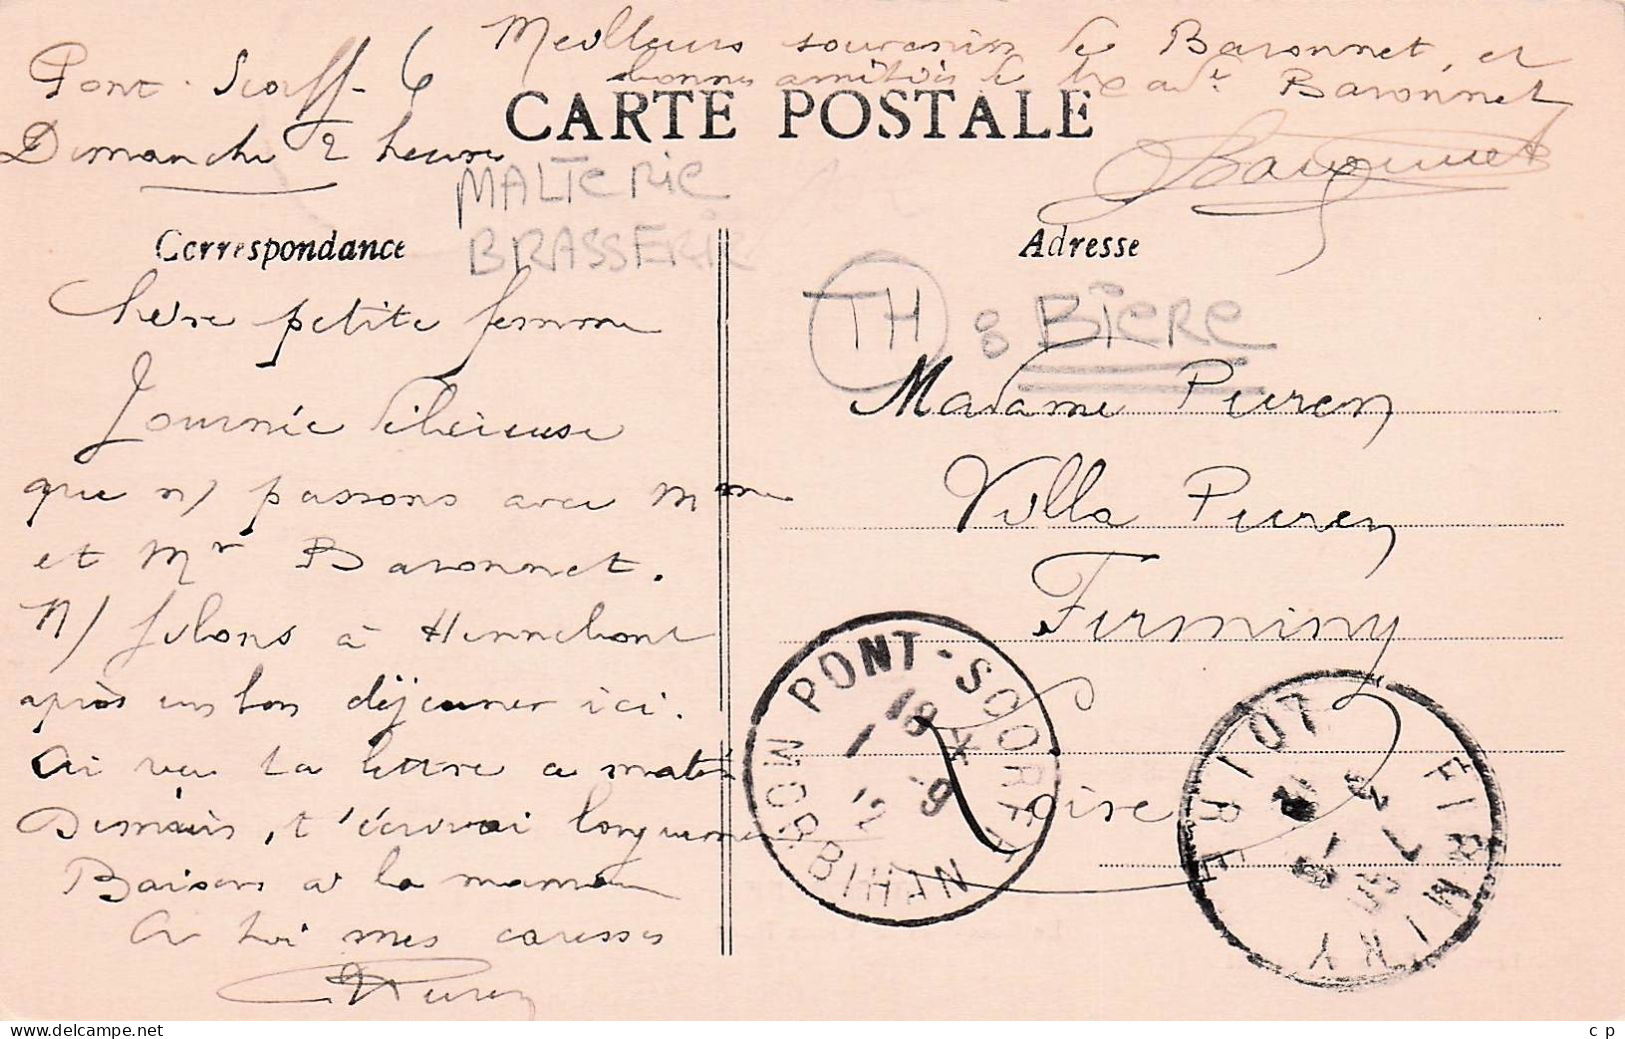 Meilleurs souvenirs de Baronnet, et
bonnes amitiés de Baronnet
Baronnet
Pont-Scorff - 6
Dimanche 2 heures
CARTE POSTALE
MALTERIE
BRASSERIE
Correspondance
Adresse
TH 8 BIÈRE
Chère petite femme
Journée délicieuse
que n/ passons avec Mme
et Mr Baronnet.
N/ filons à Hennebont
après un bon déjeuner ici.
Ai vu ta lettre ce matin
Demain, t'écrirai longuement
Baisers à la maman
A toi mes caresses
Puren
Madame Puren
Villa Puren
Firminy
Loire
PONT-SCORFF
18 X
1 9
12
MORBIHAN
FIRMINY
LOIRE